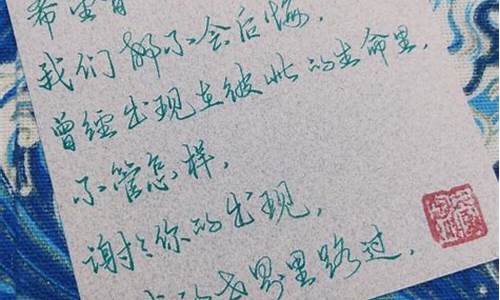 希望有
我们都不会后悔，
曾经出现在彼此的生命里，
不管怎样，
谢谢你的出现，
我的世界里路过，